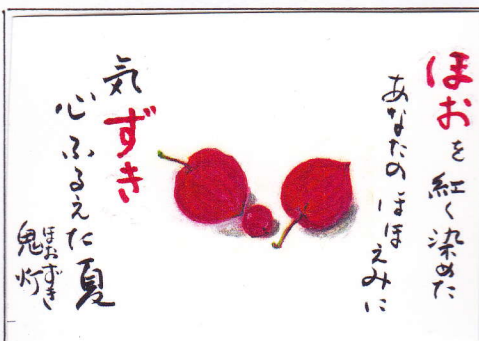 ほおを紅く染めた
あなたのほほえみに
気ずき
心ふるえた夏
鬼灯
ほおずき